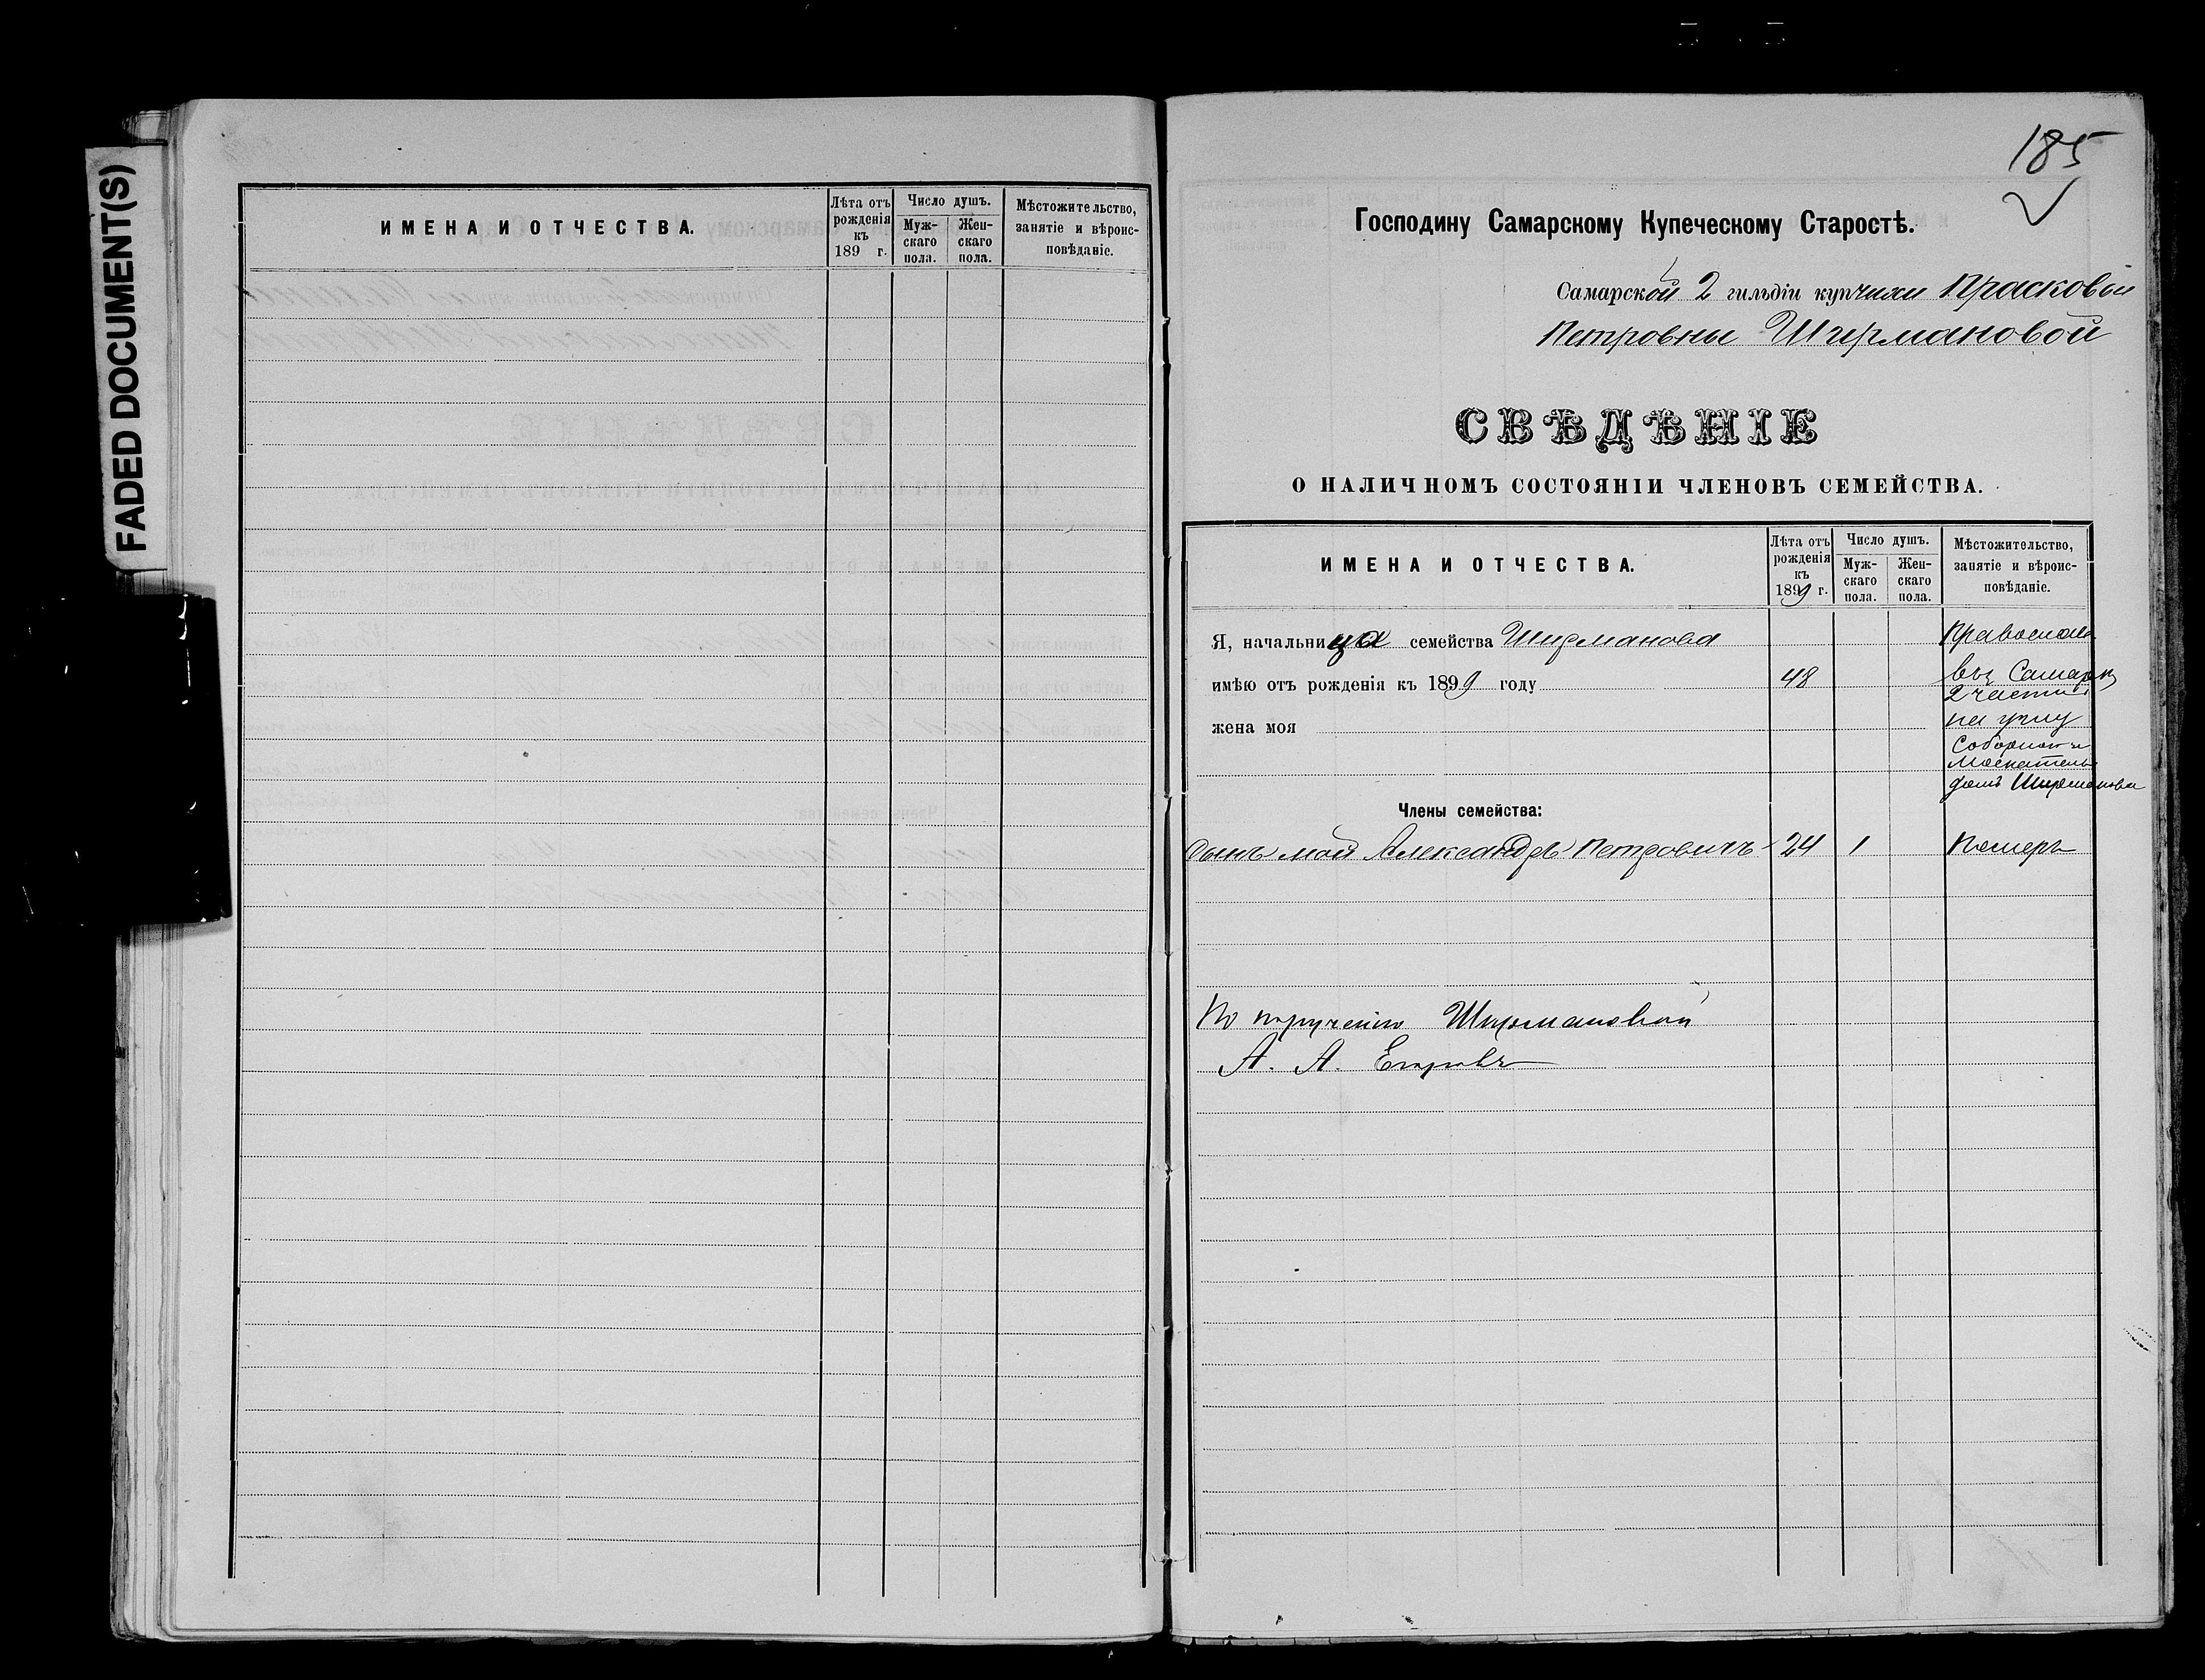 FADED DOCUMENT(S)
ИМЕНА И ОТЧЕСТВА.
Лѣта отъ рожденія къ 189 г.
Число душъ.
Муж-скаго пола.
Жен-скаго пола.
Мѣстожительство, занятіе и вѣроис-повѣданіе.
185
Господину Самарскому Купеческому Старостѣ.
Самарской 2 гильдіи купчихи Прасковьи
Петровны Ширмановой
СВѢДѢНІЕ
О НАЛИЧНОМЪ СОСТОЯНІИ ЧЛЕНОВЪ СЕМЕЙСТВА.
ИМЕНА И ОТЧЕСТВА.
Лѣта отъ рожденія къ 1899 г.
Число душъ.
Муж-скаго пола.
Жен-скаго пола.
Мѣстожительство, занятіе и вѣроис-повѣданіе.
Я, начальница семейства Ширманова
Православ
имѣю отъ рожденія къ 1899 году 48
въ Самарѣ
2 части
жена моя
на углу
Соборной и
Москатель
домъ Ширмановой
Члены семейства:
Сынъ мой Александръ Петровичъ 24 1 Померъ
По порученію Ширмановой
А. А. Егоровъ